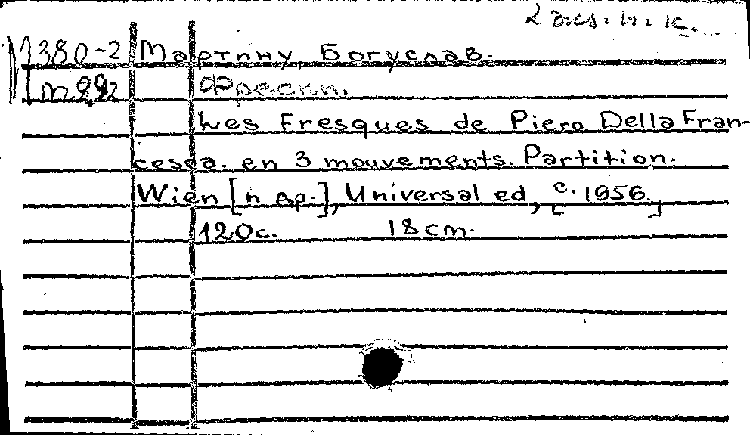 2 экз. н. к.
Л380-2 Мартину, Богуслав.
m 292 Фрески.
Les Fresques de Piero Della Fran-
cesca. en 3 mouvements. Partition.
Wien [и др.], Universal ed, [c. 1956.]
120с. 18 cm.